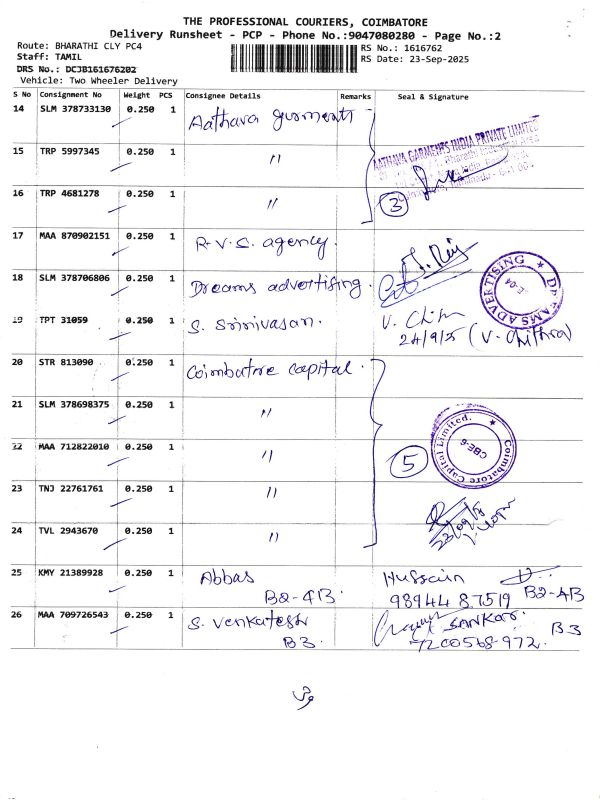 THE PROFESSIONAL COURIERS, COIMBATORE
Delivery Runsheet - PCP - Phone No.:9047080280 - Page No.:2
Route: BHARATHI CLY PC4
Staff: TAMIL
DRS No.: DCJB161676202
Vehicle: Two Wheeler Delivery
RS No.: 1616762
RS Date: 23-Sep-2025
S No Consignment No Weight PCS Consignee Details Remarks Seal & Signature
14 SLM 378733130 0.250 1 Aathava garments
AATHAVA GARMENTS INDIA PRIVATE LIMITED
15 TRP 5997345 0.250 1 "
16 TRP 4681278 0.250 1 " 3
17 MAA 870902151 0.250 1 R.V.S. agency.
18 SLM 378706806 0.250 1 Dreams advertising.
DREAMS ADVERTISING ★
19 TPT 31059 0.250 1 S. Srinivasan. V. Chitra
24/9/25 (V. Chithra)
20 STR 813090 0.250 1 Coimbatore capital.
21 SLM 378698375 0.250 1 "
Coimbatore Capital Limited. ★
CBE-6
22 MAA 712822010 0.250 1 " 5
23 TNJ 22761761 0.250 1 "
24 TVL 2943670 0.250 1 "
25 KMY 21389928 0.250 1 Abbas Hussain
B2-4B 98944 87519 B2-4B
26 MAA 709726543 0.250 1 S. Venkatesh SANKAR. B3
B3. 7200568-972.